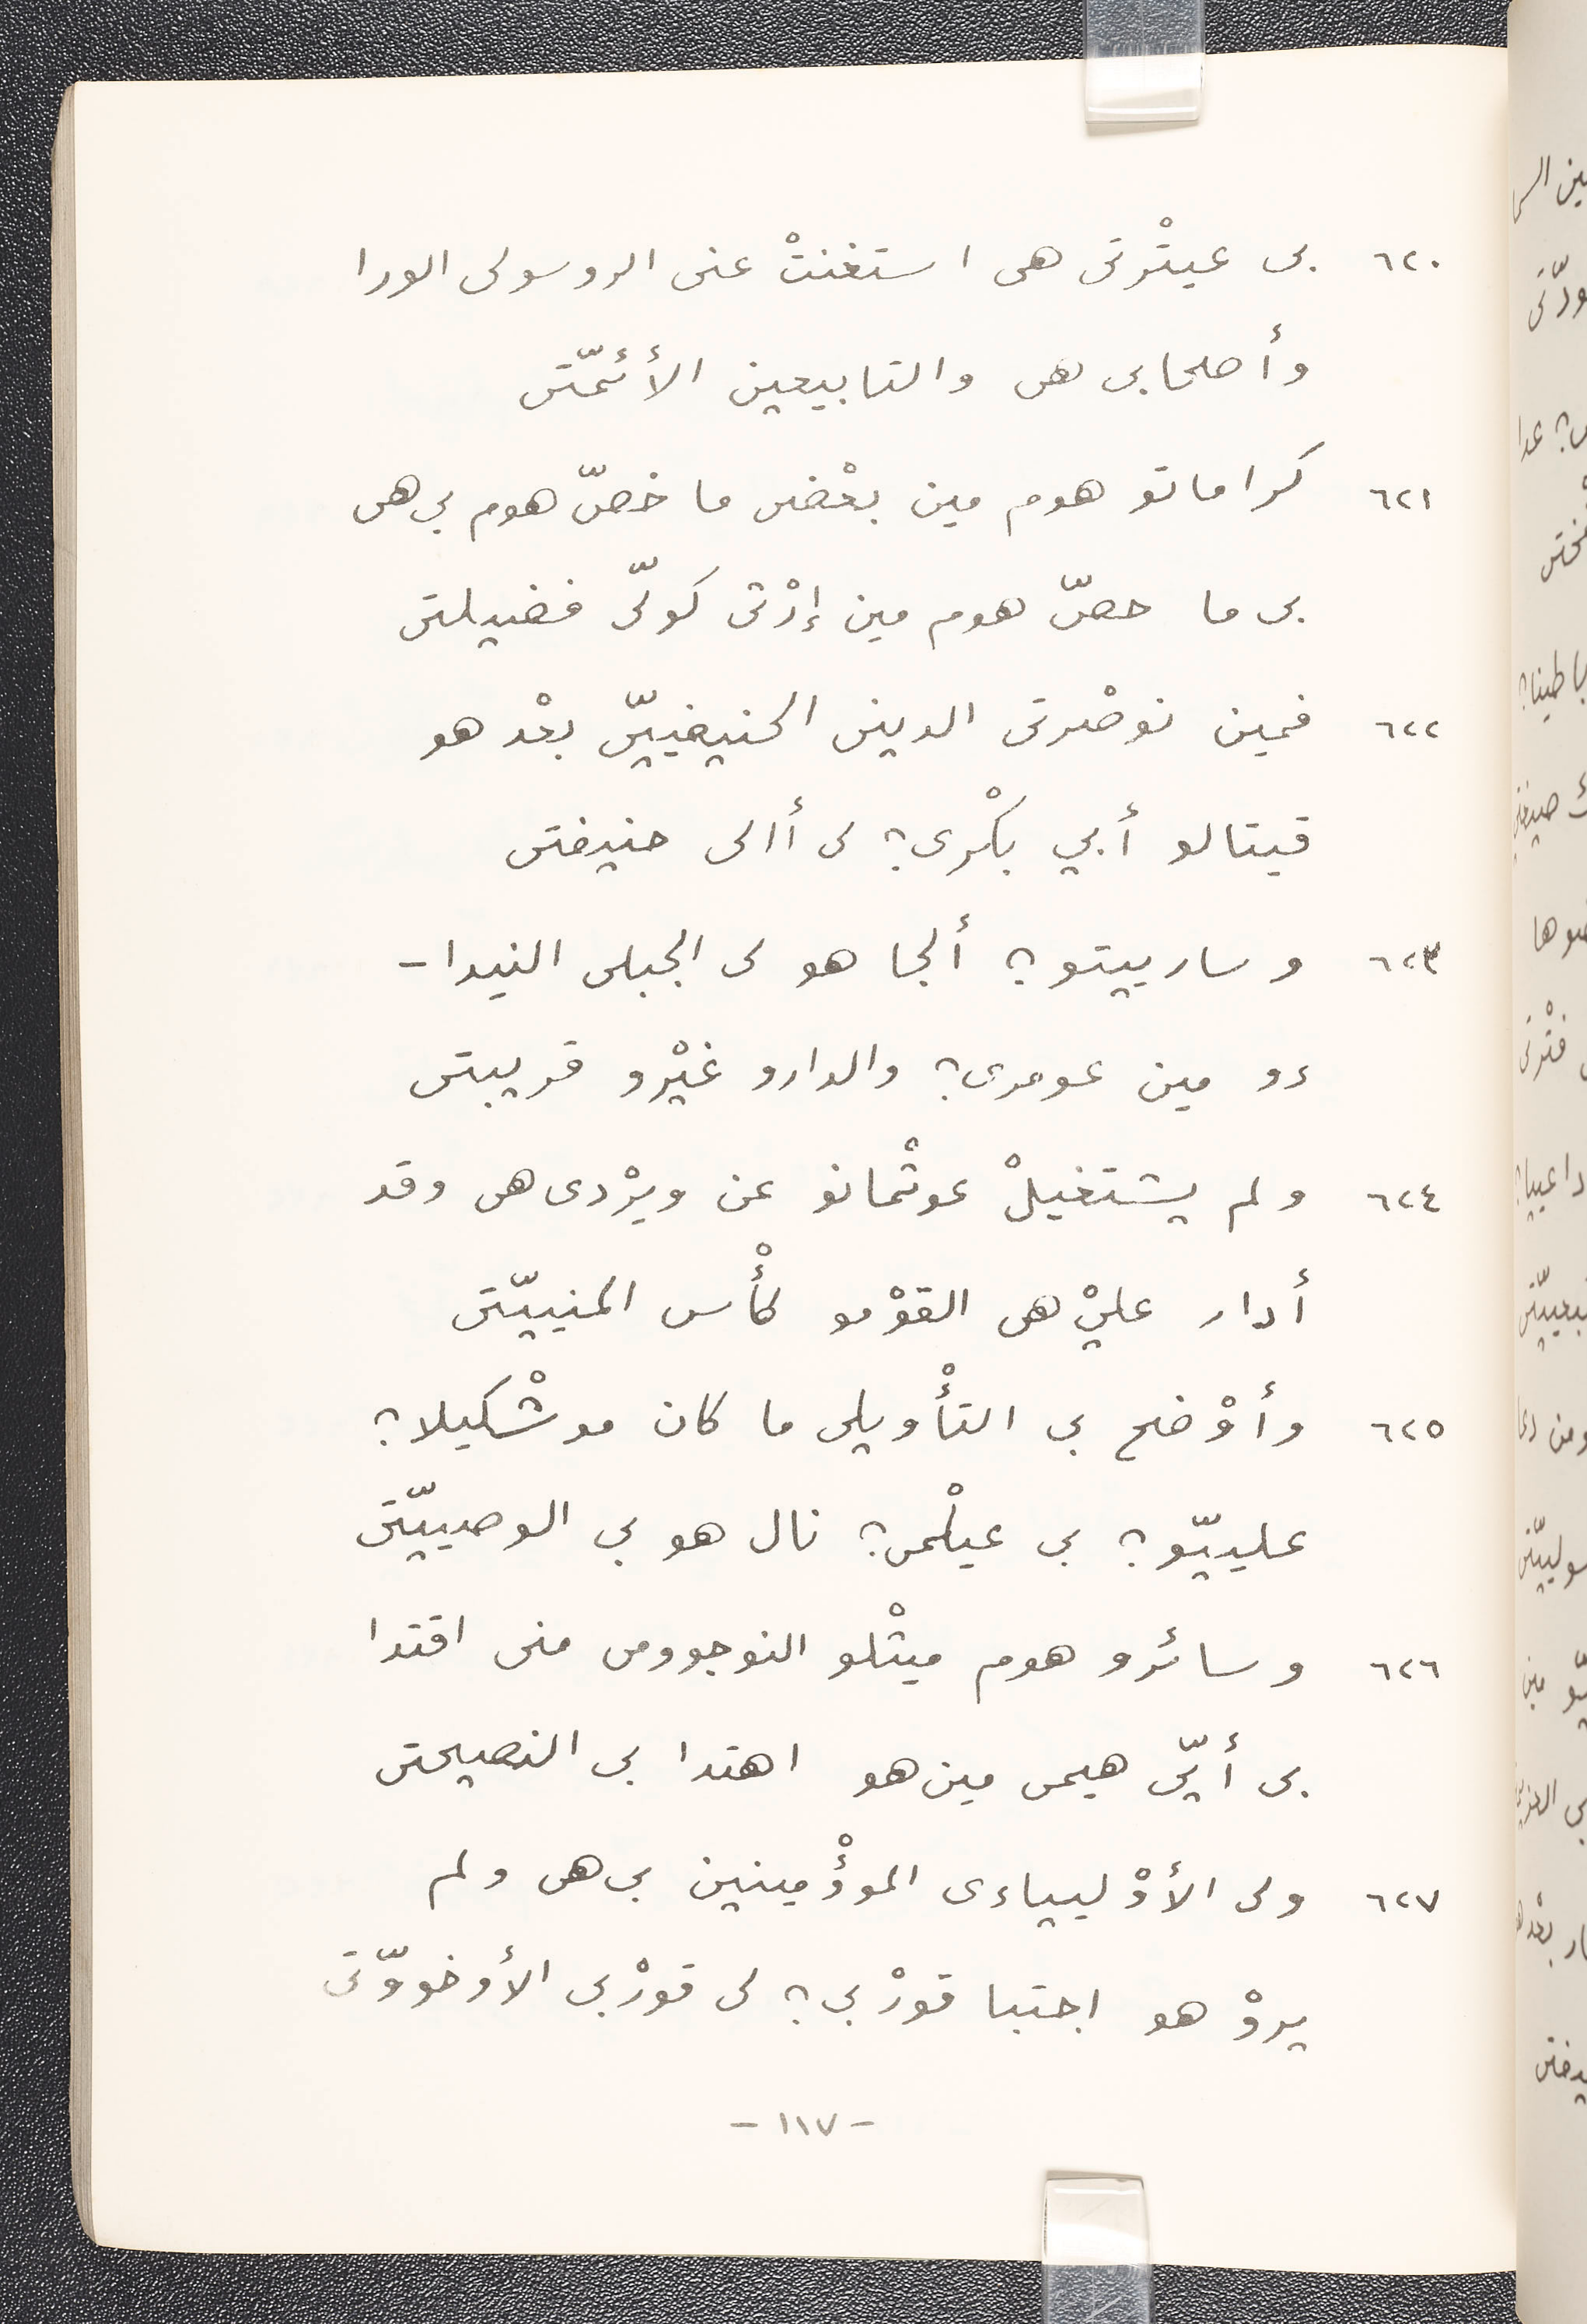 ٦٢٠ بى عيتْرتى هى استغنتْ عنى الروسولى الورا
وأصحابى هى والتابيعين الأئمّتى
٦٢١ كراماتو هوم مين بعْضى ما خصّ هوم بى هى
بى ما خصّ هوم مين إرْثى كولّى فضيلتى
٦٢٢ فمين نوصْرتى الدينى الحنيفييّ بعْد هو
قيتالو أبي بكْرى؟ لى أالى حنيفتى
٦٢٣ وساريتو؟ ألجا هو لى الجبلى النيدا-
ءو مين عومرى؟ والدارو غيْرو قريبتى
٦٢٤ ولم يشتغيلْ عوثْمانو عن ويرْدى هى وقد
أدار عليْ هى القوْمو كأْس المنييّتى
٦٢٥ وأوْضح بى التأْويلى ما كان موشْكيلا؟
علييّو؟ بى عيلْمى؟ نال هو بى الوصييّتى
٦٢٦ وسائرو هوم ميثْلو النوجوومى منى اقتدا
بى أيّى هيمى مين هو اهتدا بى النصيحتى
٦٢٧ ولى الأوْليياءى الموؤْمينين بى هى ولم
يروْ هو اجتبا قورْبى؟ لى قورْبى الأوخووّتى
-١١٧-